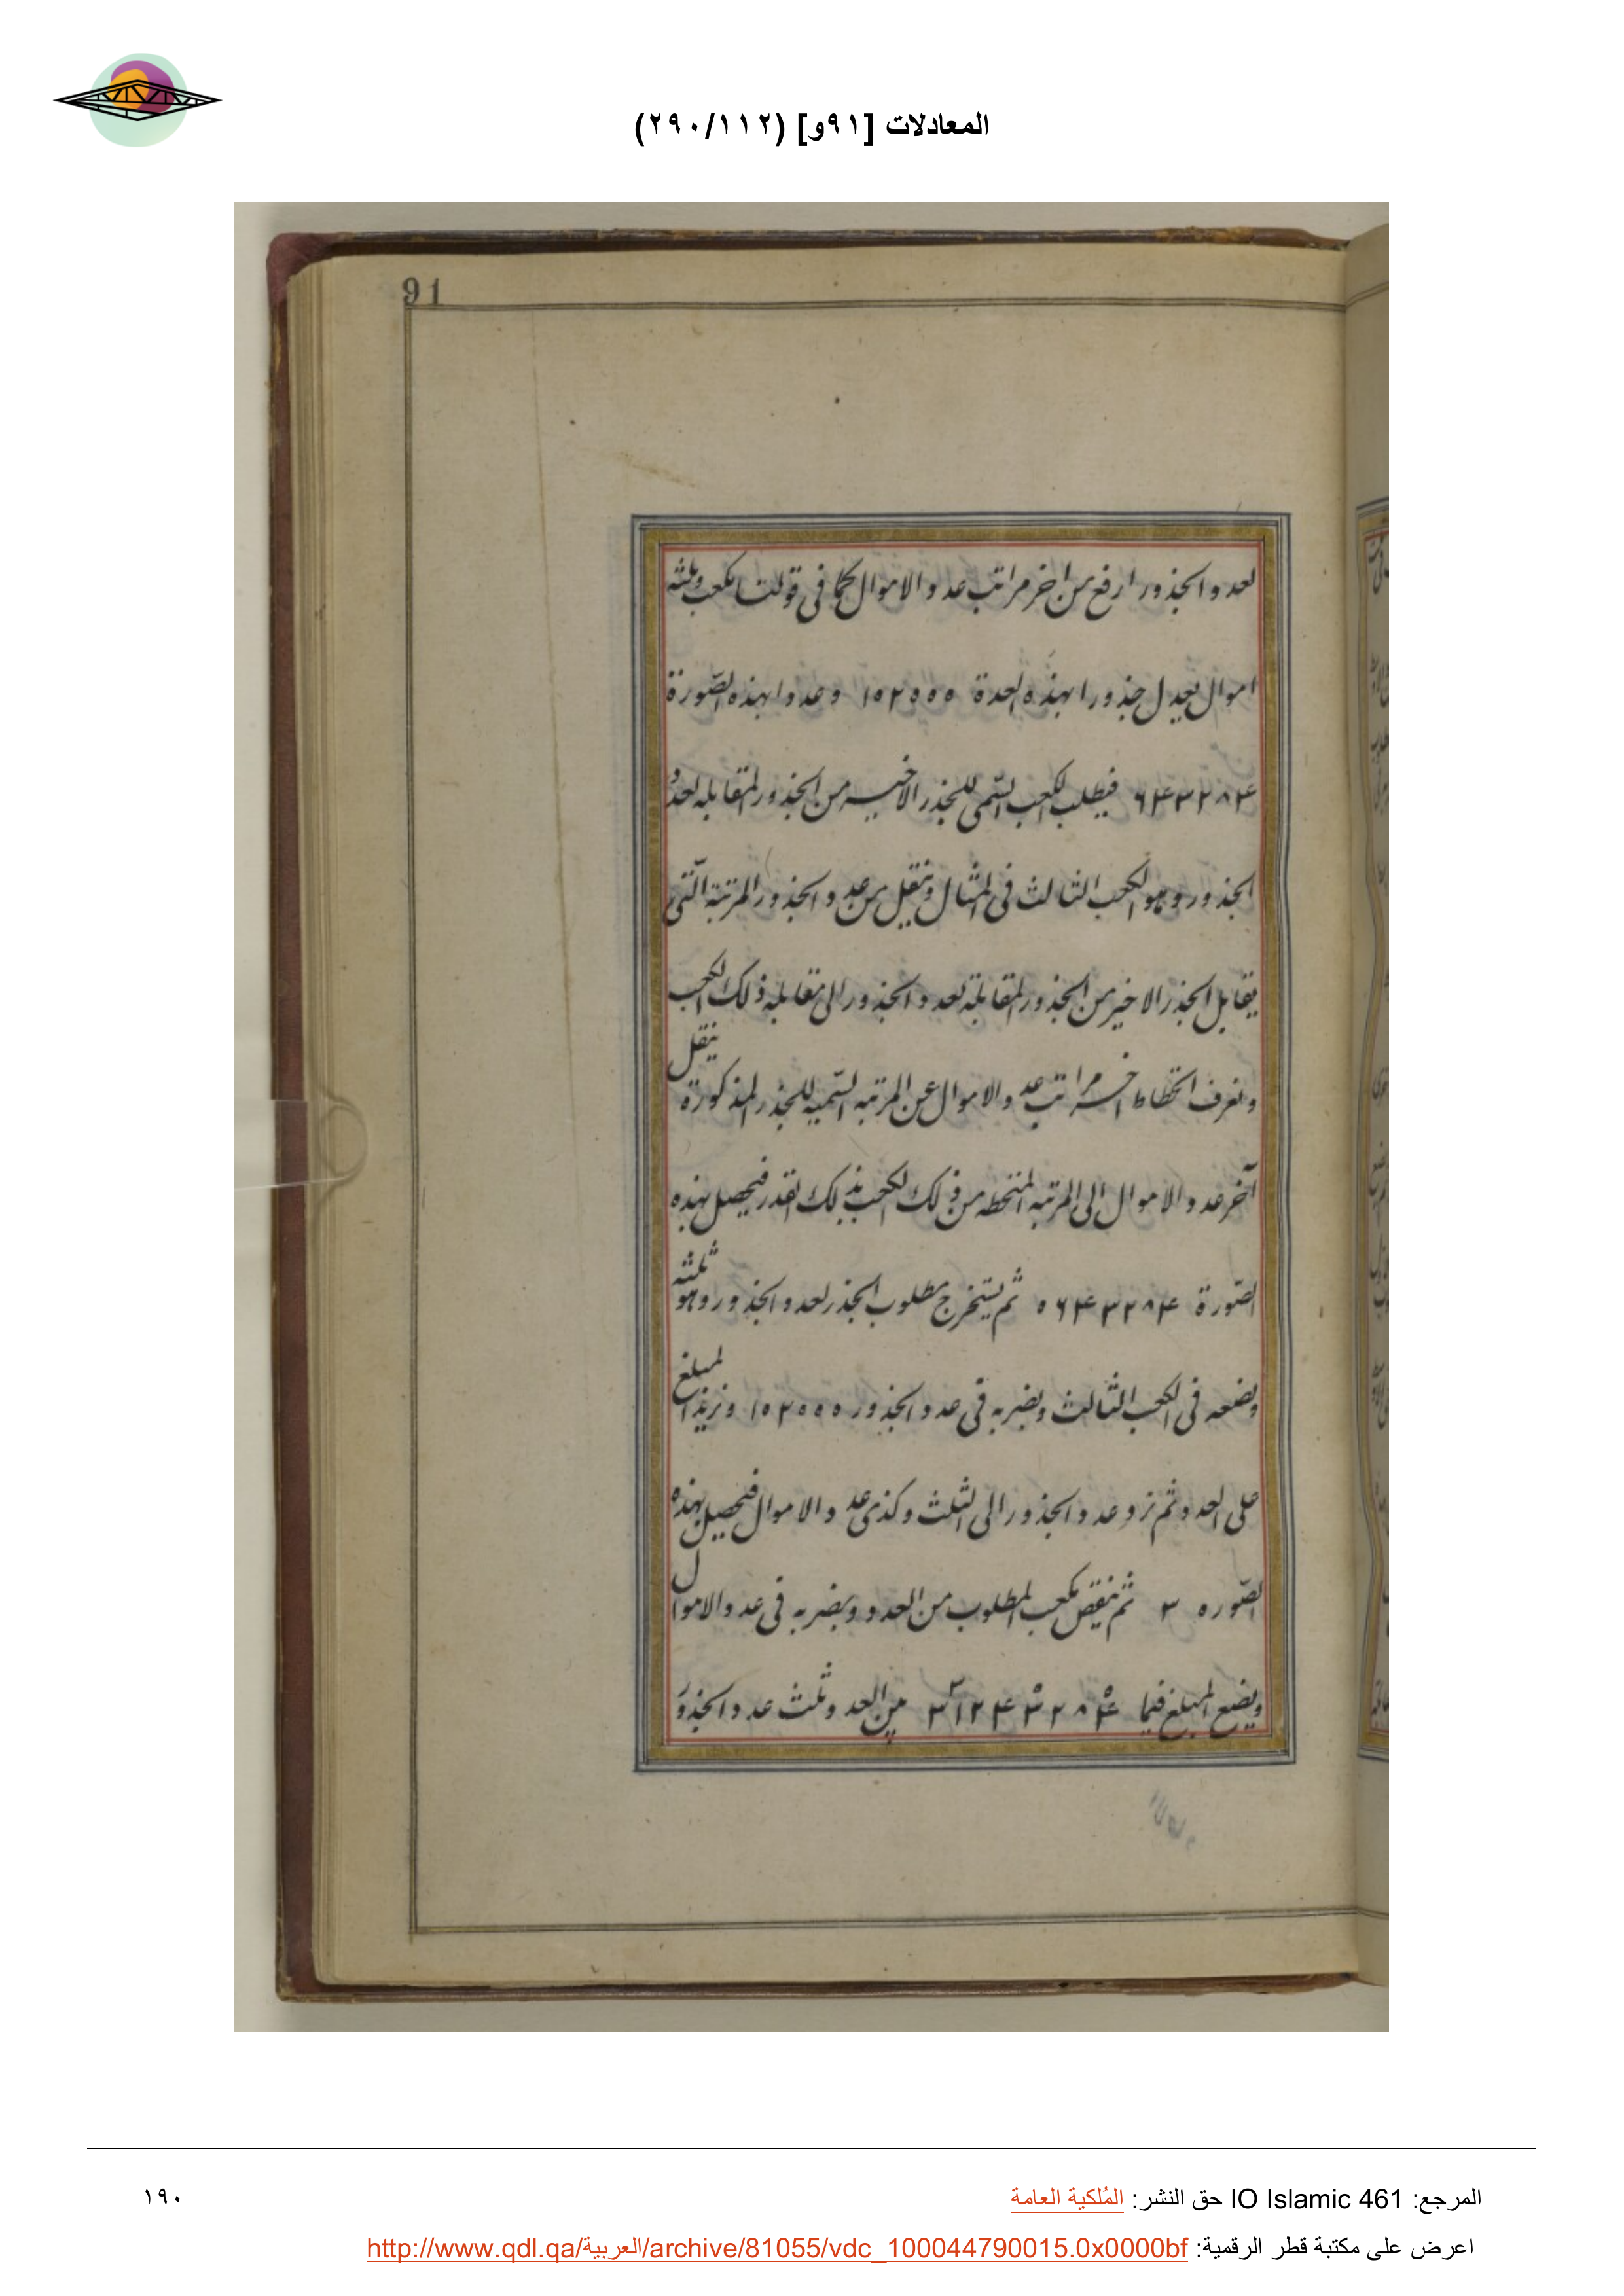 المعادلات [٩١و] (٢٩٠/١١٢)
91
لعدد الجذور ارفع من اخر مراتب عدد الاموال كما في قولنا مكعب وثلثه
اموال يعدل جذورا بهذه العدة ١٠٢٠٠٠ وعددا بهذه الصورة
٦٤٣٢٨٤ فيطلب الكعب السمى للجذر الاخير من الجذور المقابله لعدد
الجذور وهو الكعب الثالث في المثال وننقل من عدد الجذور المرتبة التي
يقابل الجذر الاخير من الجذور المقابلة لعدد الجذور الى مقابله ذلك الكعب
ونعرف انحطاط اخر مراتب عدد الاموال عن المرتبه السميه للجذر المذكورة ننقل
آخر عدد الاموال الى المرتبه المنحطه من ذلك الكعب بذلك القدر فيحصل بهذه
الصورة ٠٦٤٣٢٨٤ ثم يستخرج مطلوب الجذر لعدد الجذور وهو ثلثه
ويضعه في الكعب الثالث ويضربه في عدد الجذور ١٠٢٠٠٠ ونزيد المبلغ
على العدد ثم نرد عدد الجذور الى الثلث وكذى عدد الاموال فيحصل بهذه
الصوره ٣ ثم ننقص مكعب المطلوب من العدد ويضربه في عدد الاموال
ويضع المبلغ فيما من العدد وثلث عدد الجذور
المرجع: IO Islamic 461 حق النشر: المُلكية العامة
١٩٠
اعرض على مكتبة قطر الرقمية: http://www.qdl.qa/العربية/archive/81055/vdc_100044790015.0x0000bf